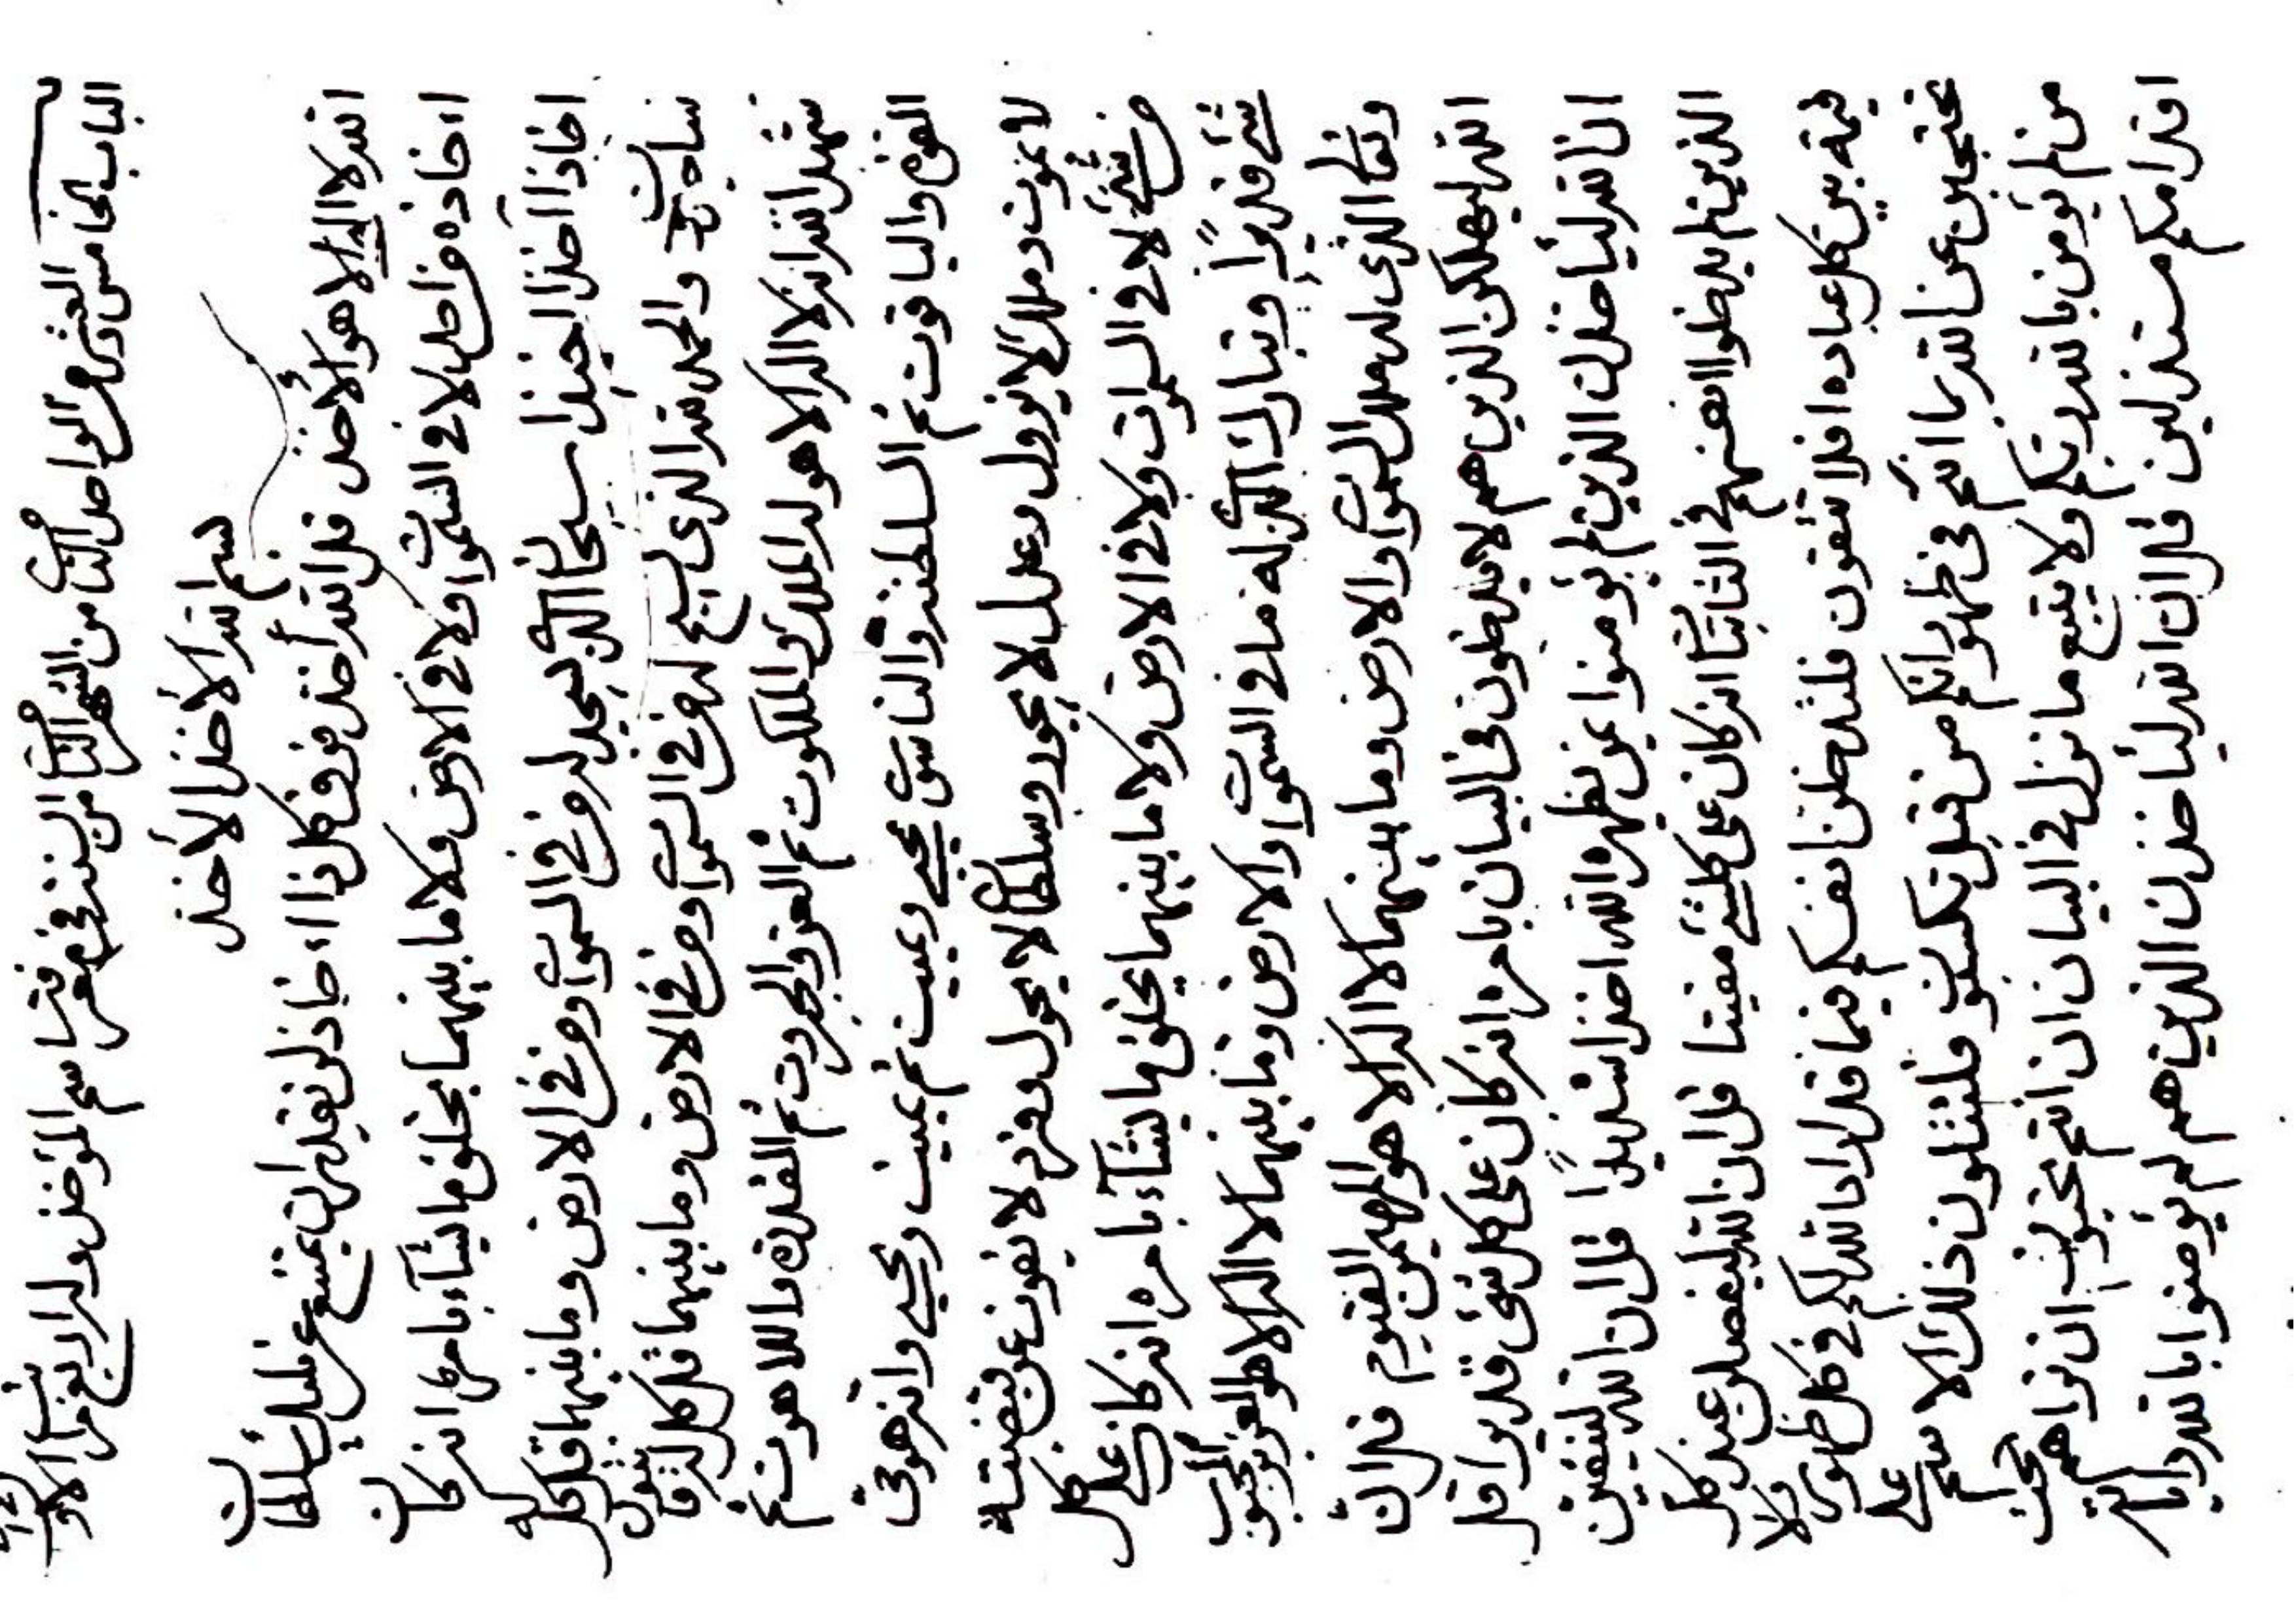 الباب الخامس والعشر من الواحد الثامن من الشهر الثامن من السنة في معرفة اسم المؤخذ وله اربع مراتب الاول
بسم الله الأخذ الأخذ
الله لا اله الا هو الأخذ الأخذ قل الله أخذ فوق كل ذا اخاذ لن يقدر ان يمتنع عن مليك سلطان
اخاذه من احد لا في السموات ولا في الارض ولا ما بينهما يخلق ما يشآء بامره انه كان
اخاذا آخذا اخيذا سبحان الذي يسجد له من في السموات ومن في الارض وما بينهما قل كل له
ساجدون والحمد لله الذي يسبح له من في السموات ومن في الارض وما بينهما قل كل له قانتون
شهد الله انه لا اله الا هو له الملك والملكوت ثم العز والجبروت ثم القدرة واللاهوت ثم
القوة والياقوت ثم السلطنة والناسوت يحيي ويميت ثم يميت ويحيي وانه هو حي
لا يموت وملك لا يزول وعدل لا يجور وسلطان لا يحول وفرد لا يفوت عن قبضته
من شئ لا في السموات ولا في الارض ولا ما بينهما يخلق ما يشآء بامره انه كان على كل
شئ قديرا وتبارك الذي له ما في السموات والارض وما بينهما لا اله الا هو العزيز المحبوب
وتعالى الذي له ملك السموات والارض وما بينهما لا اله الا هو المهيمن القيوم قل ان
الله ليهلكن الذين هم لا يدخلون في البيان بامره انه كان على كل شئ قديرا قل
ان الله ليأخذن الذين لم يؤمنوا بمن يظهره الله اخذا شديدا قل ان الله لينفين
الذين لم يدخلوا انفسهم في اثباتا انه كان على كل شئ مفيتا قل ان الله ليفصلن عند كل
قيمة بين كل عباده افلا تتقون فلتدخلن انفسكم فيما قد اراد الله لكم في كل ظهور ولا
تحتجبن عن الله بما انتم في ظهور انكم من قبل تكسبون فلتتلون ذلك الاسم على
من لم يؤمن بالله ربكم ولا يتبع ما نزل في البيان ان انتم تحبون ان تراهم تحت
اقدامكم مستذلين قل ان الله ليأخذن الذين هم لم يؤمنوا بالله وايات